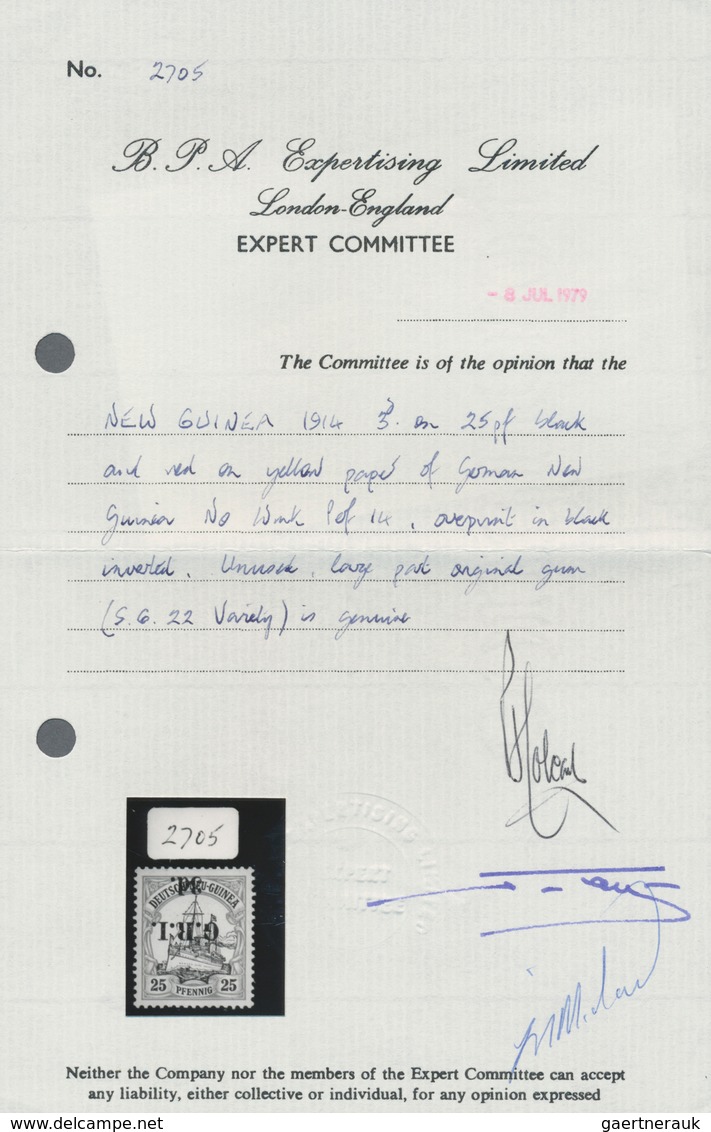 No. 2705
B. P. A. Expertising Limited
London-England
EXPERT COMMITTEE
- 8 JUL 1979
The Committee is of the opinion that the
NEW GUINEA 1914 3d. on 25pf black
and red on yellow paper of German New
Guinea No Wmk P of 14, overprint in black
inverted. Unused, large part original gum
(S.G. 22 Variety) is genuine
2705
DEUTSCH-NEU-GUINEA
3d.
G.R.I.
25 PFENNIG 25
Neither the Company nor the members of the Expert Committee can accept
any liability, either collective or individual, for any opinion expressed
gaertnerauk